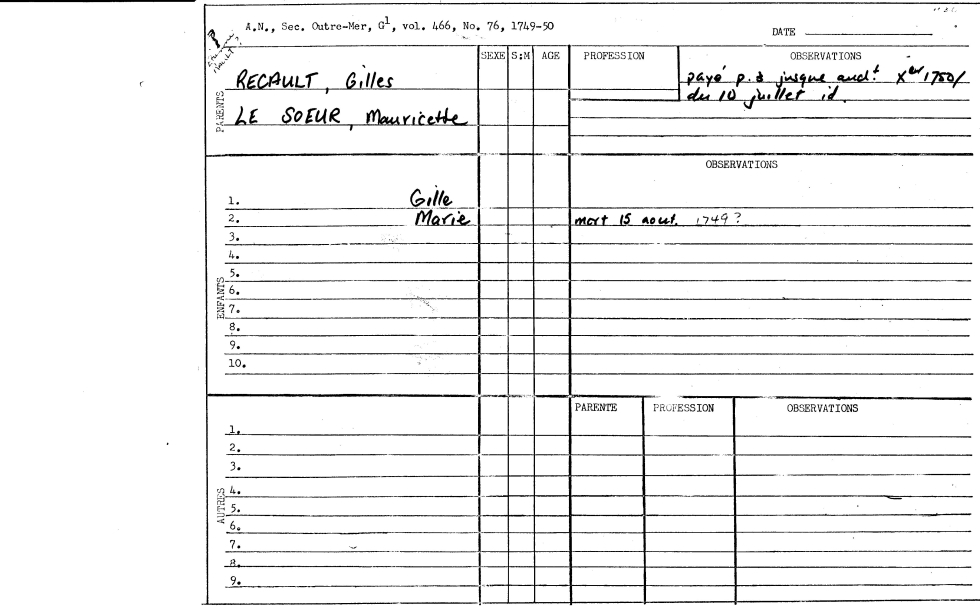 A.N., Sec. Outre-Mer, G1, vol. 466, No. 76, 1749-50
DATE
SEXE S:M AGE PROFESSION OBSERVATIONS
PARENTS
RECAULT, Gilles
payé p. 2 jusque aud.t Xer 1750/
du 10 juillet id.
LE SOEUR, Mauricette
OBSERVATIONS
ENFANTS
1. Gille
2. Marie mort 15 aout. 1749?
3.
4.
5.
6.
7.
8.
9.
10.
PARENTE PROFESSION OBSERVATIONS
AUTRES
1.
2.
3.
4.
5.
6.
7.
8.
9.